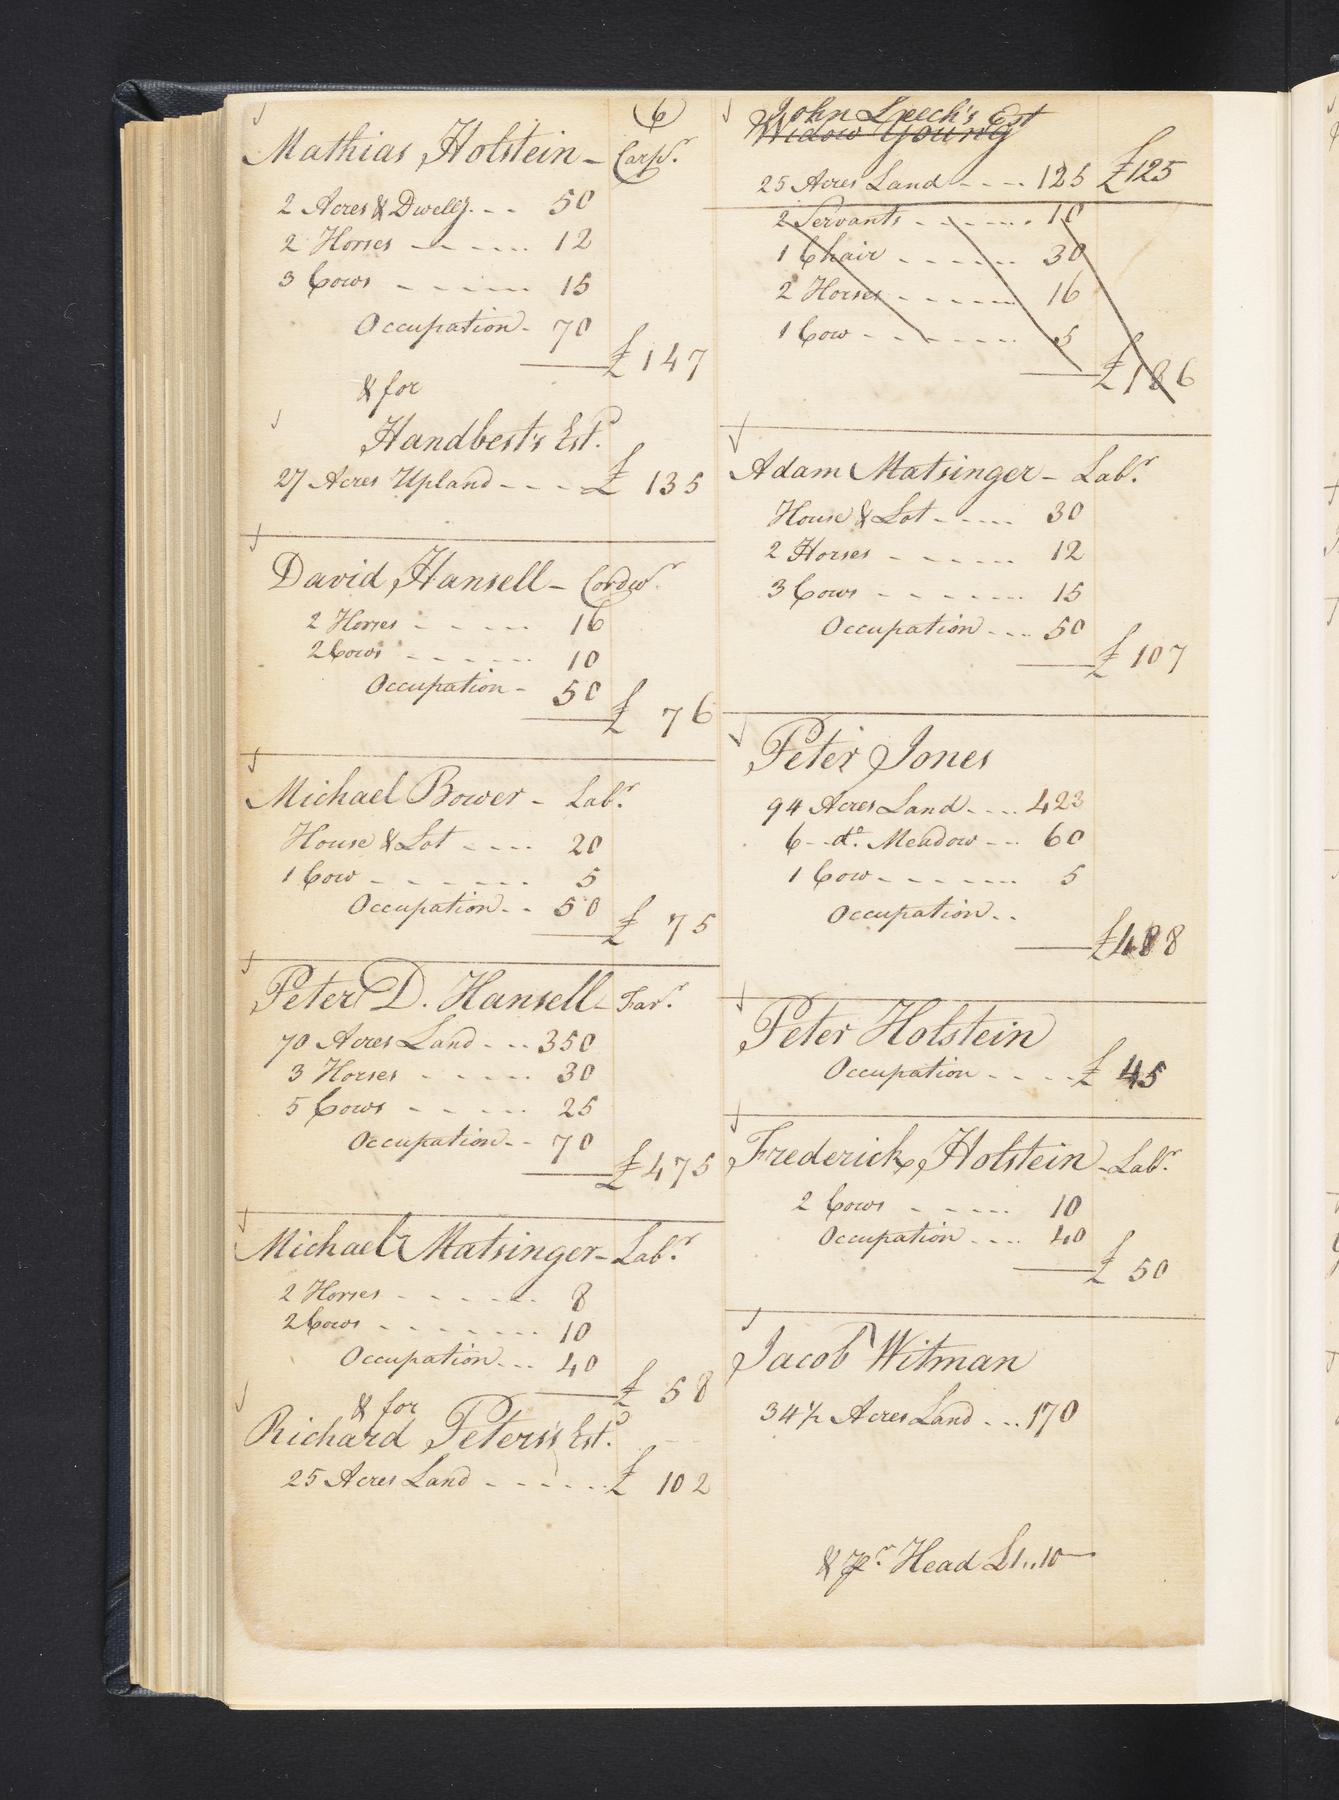 (6)
Mathias Holstein - Carpr.
2 Acres & Dwellg. - - 50
2 Horses - - - - - 12
3 Cows - - - - - 15
Occupation - 70
£ 147
& for
Handbest's Estd.
27 Acres Upland - - - - £ 135
David Hansell - Cordwr.
2 Horses - - - - 16
2 Cows - - - - - 10
Occupation - 50
£ 76
Michael Bower - Labr.
House & Lot - - - - 20
1 Cow - - - - - - 5
Occupation - - 50
£ 75
Peter D. Hansell - Farr.
70 Acres Land - - - 350
3 Horses - - - - - 30
5 Cows - - - - - 25
Occupation - - 70
£ 475
Michael Matsinger - Labr.
2 Horses - - - - - 8
2 Cows - - - - - - - 10
Occupation - - - 40
£ 58
& for
Richard Peters's Estd.
25 Acres Land - - - - - - £ 102
John Leech's Est
Widow Young
25 Acres Land - - - - 125 £125
2 Servants - - - - - - 10
1 Chair - - - - - - 30
2 Horses - - - - - - 16
1 Cow - - - - - - - 5
£ 186
Adam Matsinger - Labr.
House & Lot - - - - - 30
2 Horses - - - - - - 12
3 Cows - - - - - - - 15
Occupation - - - 50
£ 107
Peter Jones
94 Acres Land - - - - 423
6 - - do. Meadow - - - 60
1 Cow - - - - - - - 5
Occupation - -
£488
Peter Holstein
Occupation - - - - £ 45
Frederick Holstein - Labr.
2 Cows - - - - - 10
Occupation - - - - 40
£ 50
Jacob Witman
34 1/2 Acres Land - - - 170
& pr. Head £1..10 —